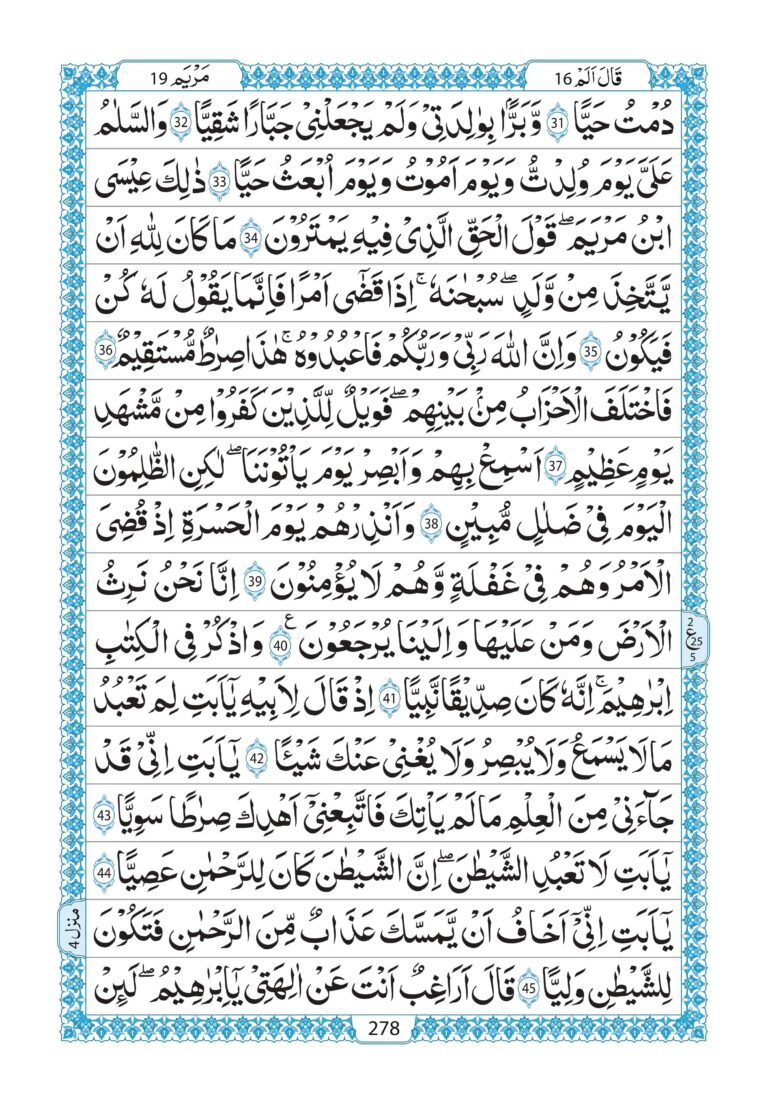 قَالَ اَلَمْ 16
مَرْيَم 19
دُمْتُ حَيًّا 31 وَّبَرًّۢا بِوَالِدَتِىْ وَلَمْ يَجْعَلْنِىْ جَبَّارًا شَقِيًّا 32 وَالسَّلٰمُ
عَلَىَّ يَوْمَ وُلِدْتُّ وَيَوْمَ اَمُوْتُ وَيَوْمَ اُبْعَثُ حَيًّا 33 ذٰلِكَ عِيْسَى
ابْنُ مَرْيَمَ ۖ قَوْلَ الْحَقِّ الَّذِىْ فِيْهِ يَمْتَرُوْنَ 34 مَا كَانَ لِلّٰهِ اَنْ
يَّتَّخِذَ مِنْ وَّلَدٍ ۖ سُبْحٰنَهٗ ۚ اِذَا قَضٰٓى اَمْرًا فَاِنَّمَا يَقُوْلُ لَهٗ كُنْ
فَيَكُوْنُ 35 وَاِنَّ اللّٰهَ رَبِّىْ وَرَبُّكُمْ فَاعْبُدُوْهُ ۚ هٰذَا صِرٰطٌ مُّسْتَقِيْمٌ 36
فَاخْتَلَفَ الْاَحْزَابُ مِنْۢ بَيْنِهِمْ ۖ فَوَيْلٌ لِّلَّذِيْنَ كَفَرُوْا مِنْ مَّشْهَدِ
يَوْمٍ عَظِيْمٍ 37 اَسْمِعْ بِهِمْ وَاَبْصِرْ يَوْمَ يَاْتُوْنَنَا ۖ لٰكِنِ الظّٰلِمُوْنَ
الْيَوْمَ فِىْ ضَلٰلٍ مُّبِيْنٍ 38 وَاَنْذِرْهُمْ يَوْمَ الْحَسْرَةِ اِذْ قُضِىَ
الْاَمْرُ وَهُمْ فِىْ غَفْلَةٍ وَّهُمْ لَا يُؤْمِنُوْنَ 39 اِنَّا نَحْنُ نَرِثُ
الْاَرْضَ وَمَنْ عَلَيْهَا وَاِلَيْنَا يُرْجَعُوْنَ 40 ع وَاذْكُرْ فِى الْكِتٰبِ
2 ع 25 5
اِبْرٰهِيْمَ ۚ اِنَّهٗ كَانَ صِدِّيْقًا نَّبِيًّا 41 اِذْ قَالَ لِاَبِيْهِ يٰٓاَبَتِ لِمَ تَعْبُدُ
مَا لَا يَسْمَعُ وَلَا يُبْصِرُ وَلَا يُغْنِىْ عَنْكَ شَيْـًٔا 42 يٰٓاَبَتِ اِنِّىْ قَدْ
جَآءَنِىْ مِنَ الْعِلْمِ مَا لَمْ يَاْتِكَ فَاتَّبِعْنِىْٓ اَهْدِكَ صِرٰطًا سَوِيًّا 43
يٰٓاَبَتِ لَا تَعْبُدِ الشَّيْطٰنَ ۖ اِنَّ الشَّيْطٰنَ كَانَ لِلرَّحْمٰنِ عَصِيًّا 44
يٰٓاَبَتِ اِنِّىْٓ اَخَافُ اَنْ يَّمَسَّكَ عَذَابٌ مِّنَ الرَّحْمٰنِ فَتَكُوْنَ
منزل 4
لِلشَّيْطٰنِ وَلِيًّا 45 قَالَ اَرَاغِبٌ اَنْتَ عَنْ اٰلِهَتِىْ يٰٓاِبْرٰهِيْمُ ۖ لَئِنْ
278